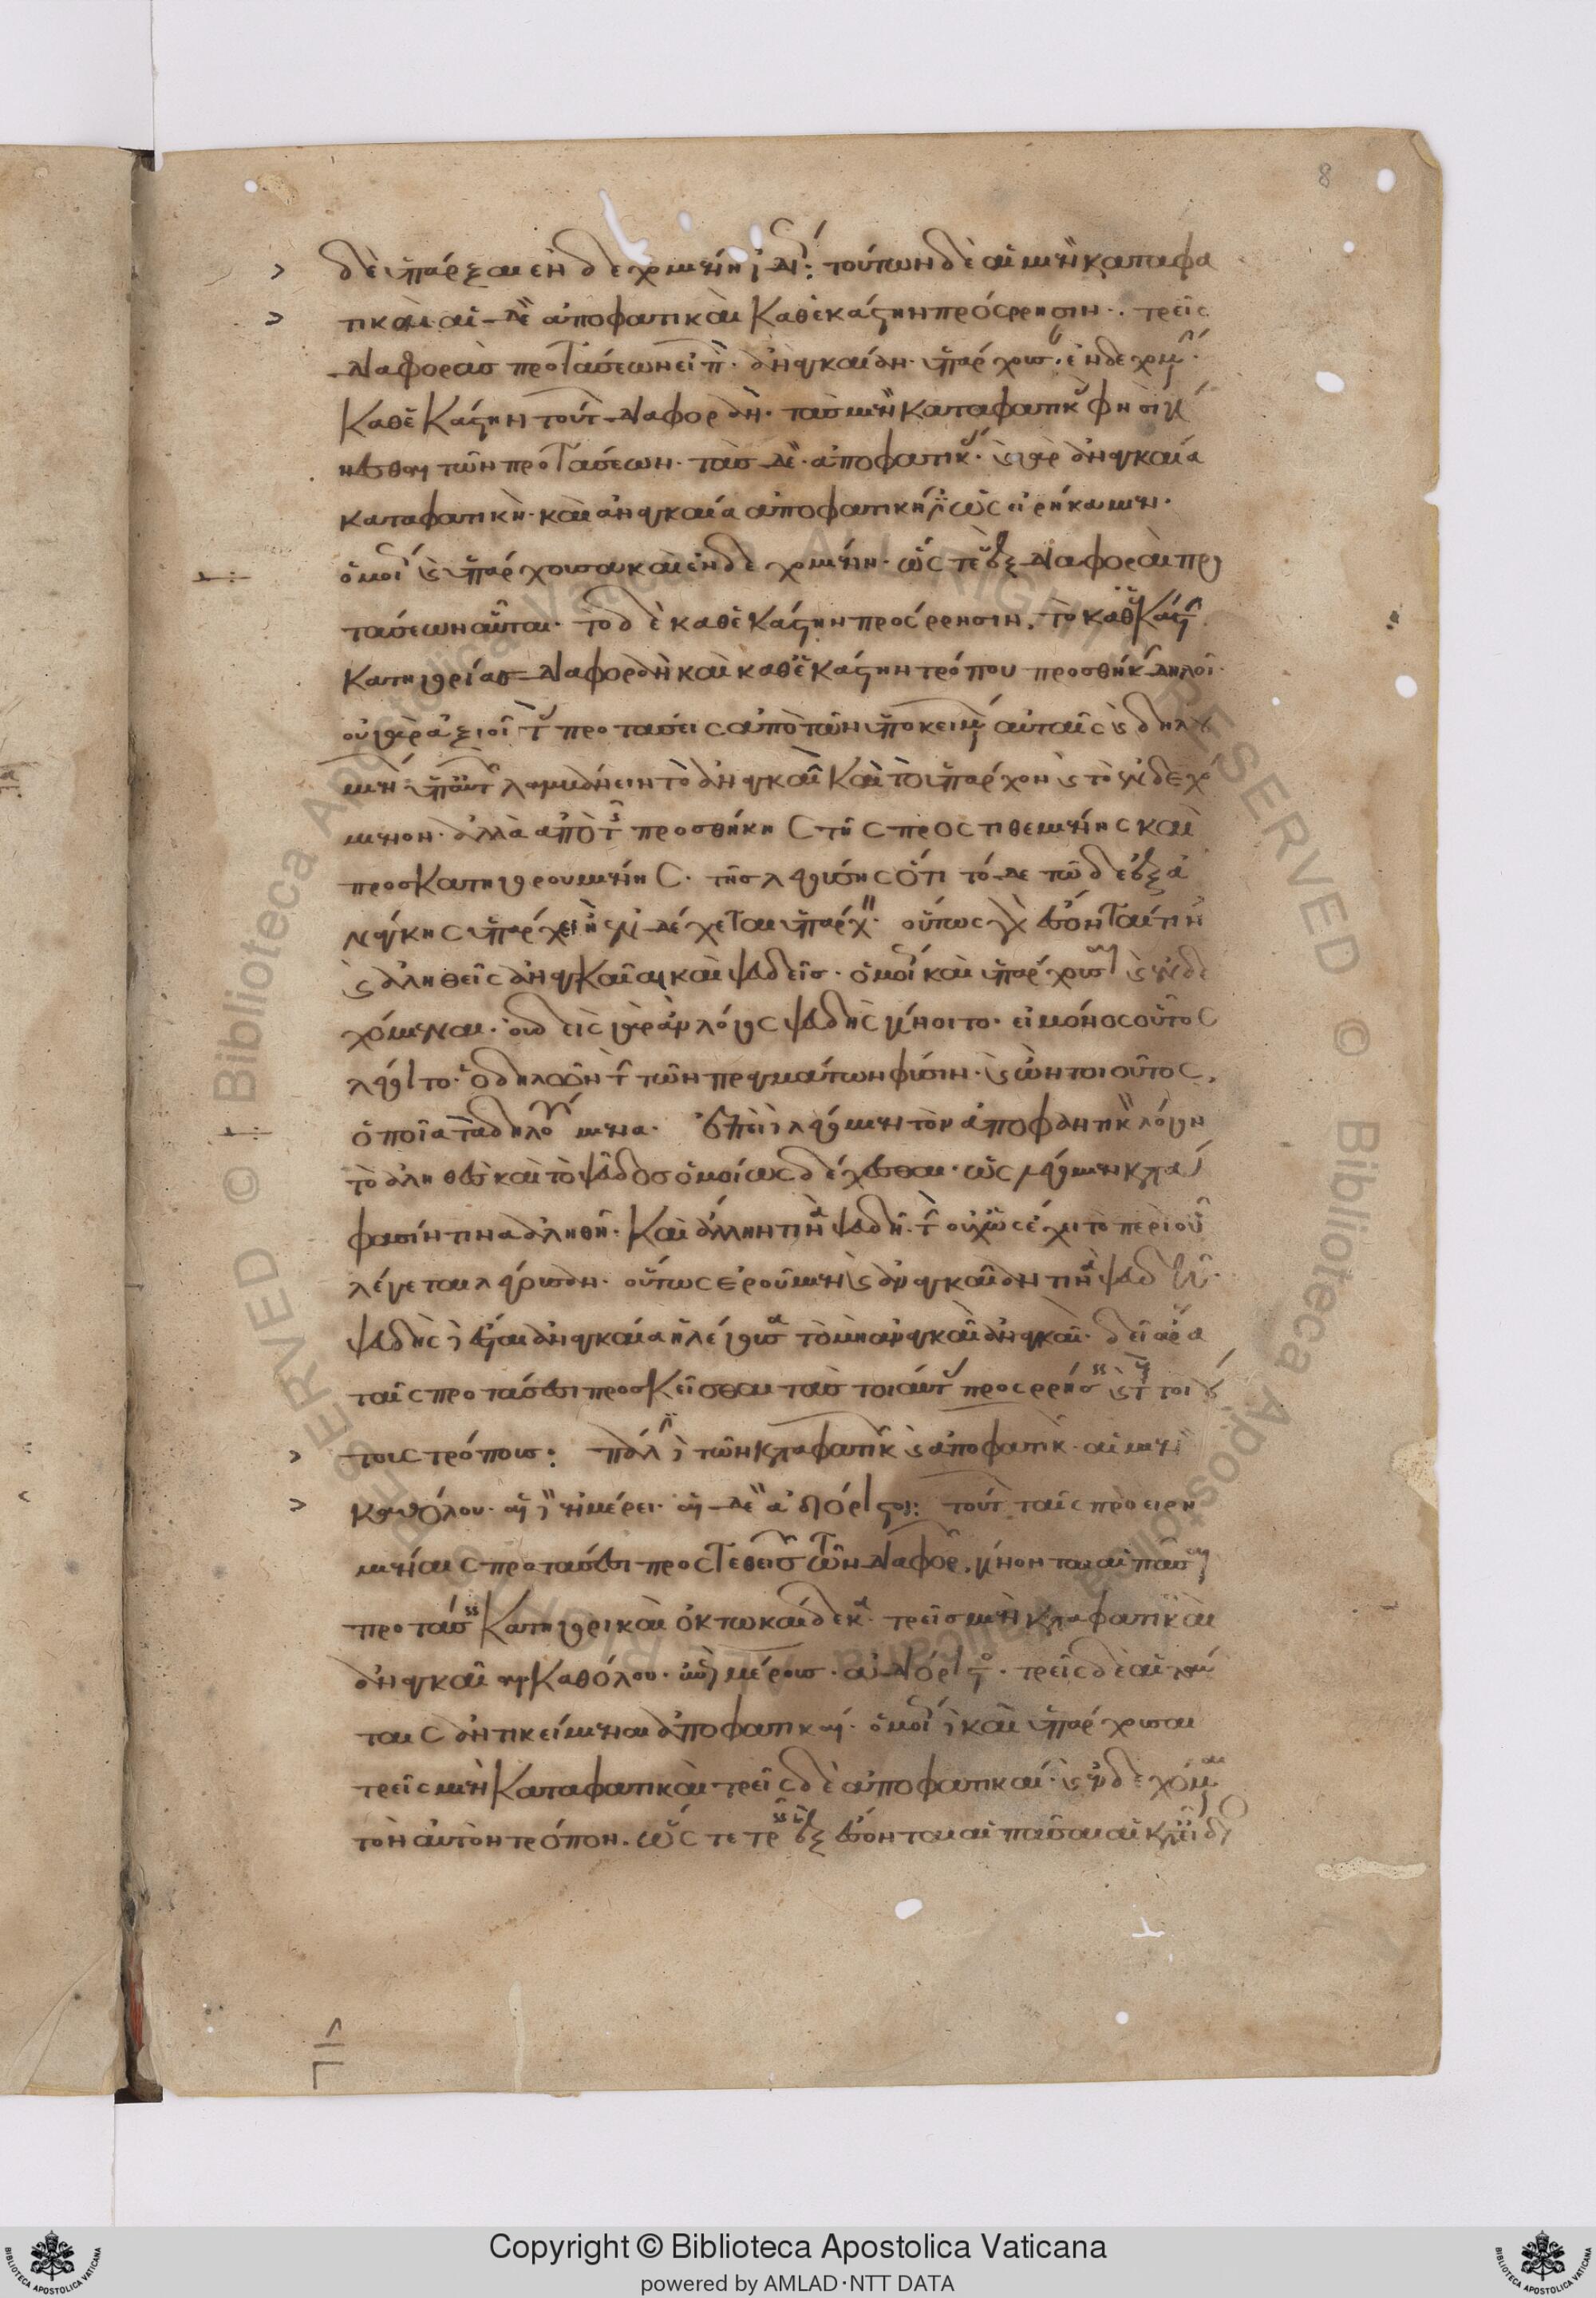 8
δὲ ὑπάρξαι ἐνδεχομένην εἶναι: τούτων δὲ αἱ μὲν καταφα
τικαὶ· αἱ δὲ ἀποφατικαὶ καθ' ἑκάστην πρόσρησιν· τρεῖς
διαφορὰς προτάσεων εἰπὼν· ἀναγκαίαν· ὑπάρχουσαν· ἐνδεχομένην·
καθ' ἑκάστην τούτων διαφορὰν· τὰς μὲν καταφατικάς φησι γί
νεσθαι τῶν προτάσεων· τὰς δὲ ἀποφατικάς· καὶ γὰρ ἀναγκαία
καταφατικὴ· καὶ ἀναγκαία ἀποφατική ἐστιν ὡς εἰρήκαμεν·
ὁμοίως καὶ ὑπάρχουσα καὶ ἐνδεχομένη· ὥστε ἓξ διαφοραὶ προ
τάσεων αὗται· τὸ δὲ καθ' ἑκάστην πρόσρησιν, τὸ καθ' ἑκάστην
κατηγορίας διαφορὰν καὶ καθ' ἑκάστην τρόπου προσθήκην δηλοῖ·
οὐ γὰρ ἀξιοῖ τὰς προτάσεις ἀπὸ τῶν ὑποκειμένων αὐταῖς καὶ δηλου
μένων ὑπ' αὐτῶν λαμβάνειν τὸ ἀναγκαῖον καὶ τὸ ὑπάρχον καὶ τὸ ἐνδεχό
μενον· ἀλλὰ ἀπὸ τῆς προσθήκης τῆς προστιθεμένης καὶ
προσκατηγορουμένης· τῆς λεγούσης ὅτι τόδε τῷδε ἐξ ἀ
νάγκης ὑπάρχει ἢ ἐνδέχεται ὑπάρχειν· οὕτως γὰρ ἔσονταί τινες
καὶ ἀληθεῖς ἀναγκαῖαι καὶ ψευδεῖς· ὁμοίως καὶ ὑπάρχουσαι καὶ ἐνδε
χόμεναι· οὐδεὶς γὰρ ἂν λόγος ψευδὴς γένοιτο· εἰ μόνος οὗτος
λέγοιτο· ὁ δηλῶν τὴν τῶν πραγμάτων φύσιν· καὶ ὢν τοιοῦτος,
ὁποῖα τὰ δηλούμενα· ἐπεὶ δὲ λέγομεν τὸν ἀποφαντικὸν λόγον
τὸ ἀληθὲς καὶ τὸ ψεῦδος ὁμοίως δέχεσθαι· ὡς λέγομεν κατά
φασίν τινα ἀληθῆ· καὶ ἄλλην τινὰ ψευδῆ· τὴν οὐχ ὡς ἔχει τὸ περὶ οὗ
λέγεται λέγουσαν· οὕτως ἐροῦμεν καὶ ἀναγκαίαν τινὰ ψευδῆ·
ψευδὴς δὲ ἔσται ἀναγκαία ἡ λέγουσα τὸ μὴ ἀναγκαῖον ἀναγκαῖον· δεῖ ἄρα
ταῖς προτάσεσι προσκεῖσθαι τὰς τοιαύτας προσρήσεις καὶ τοὺς τοιού
τους τρόπους: πάλιν δὲ τῶν καταφατικῶν καὶ ἀποφατικῶν· αἱ μὲν
καθόλου· αἱ δὲ ἐν μέρει· αἱ δὲ ἀδιόριστοι: τούτων ταῖς προειρη
μέναις προτάσεσι προστεθεισῶν τῶν διαφορῶν, γίνονται αἱ πᾶσαι
προτάσεις κατηγορικαὶ ὀκτωκαίδεκα· τρεῖς μὲν καταφατικαὶ
ἀναγκαῖαι· καθόλου· ἐπὶ μέρους· ἀδιόριστος· τρεῖς δὲ αἱ ταύ
ταις ἀντικείμεναι ἀποφατικαί· ὁμοίως δὲ καὶ ὑπάρχουσαι
τρεῖς μὲν καταφατικαὶ· τρεῖς δὲ ἀποφατικαί· καὶ ἐνδεχόμεναι
τὸν αὐτὸν τρόπον· ὥστε τρεῖς ἓξ ἔσονται αἱ πᾶσαι
Copyright © Biblioteca Apostolica Vaticana
powered by AMLAD·NTT DATA